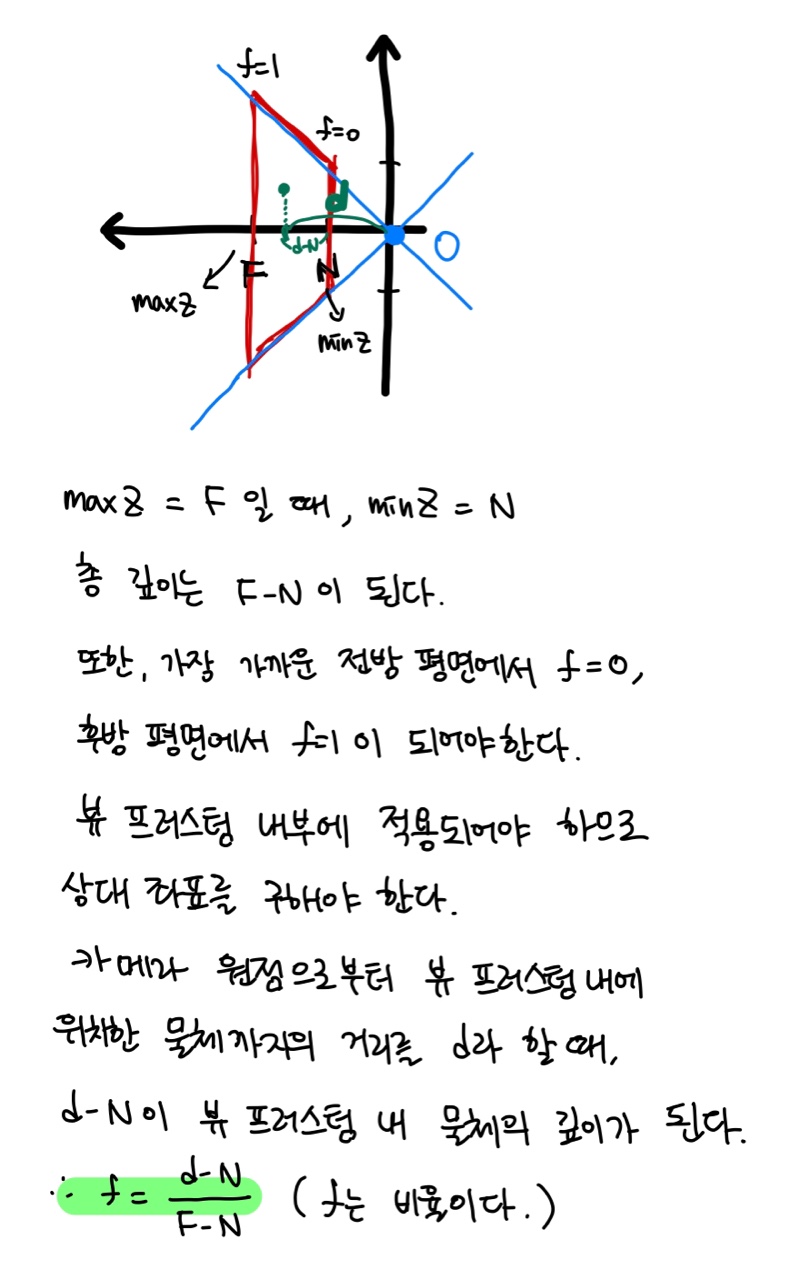 f=1
f=0
d
O
d-N
F
N
maxZ
minZ
maxZ = F 일 때, minZ = N
총 깊이는 F-N이 된다.
또한, 가장 가까운 전방 평면에서 f=0,
후방 평면에서 f=1이 되어야한다.
뷰 프러스텀 내부에 적용되어야 하므로
상대 좌표를 구해야 한다.
카메라 원점으로부터 뷰 프러스텀 내에
위치한 물체까지의 거리를 d라 할 때,
d-N이 뷰 프러스텀 내 물체의 깊이가 된다.
∴ f = d-N / F-N (f는 비율이다.)